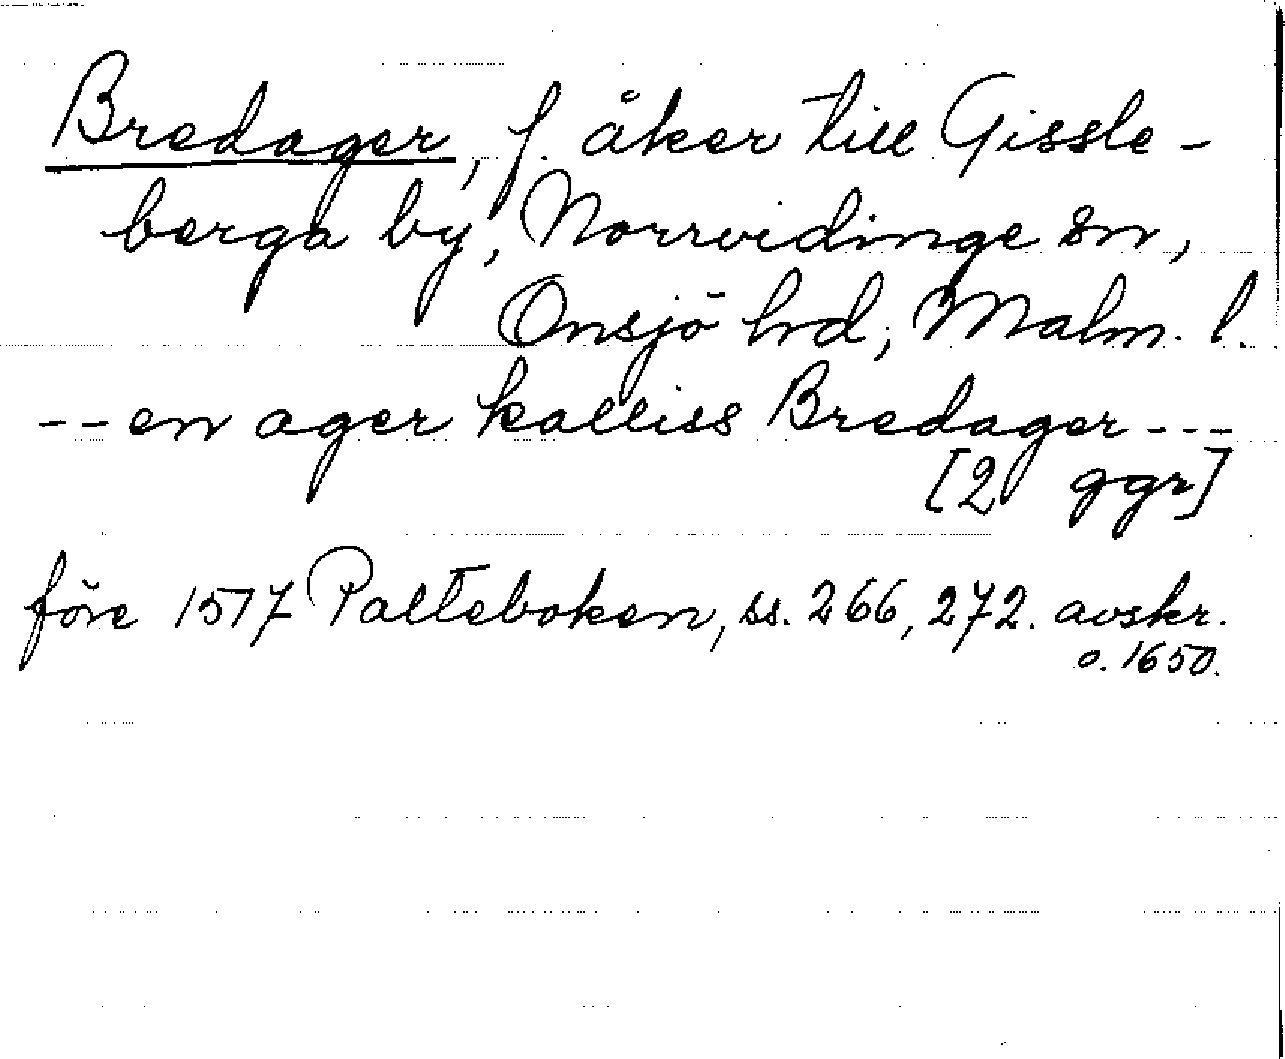 Bredager, f. åker till Gissle-
berga by, Norrvidinge sn,
Onsjö hd, Malm. l.
-- en ager kalliss Bredager ---
[2 ggr]
före 1517 Palteboken, ss. 266, 272. avskr.
o. 1650.